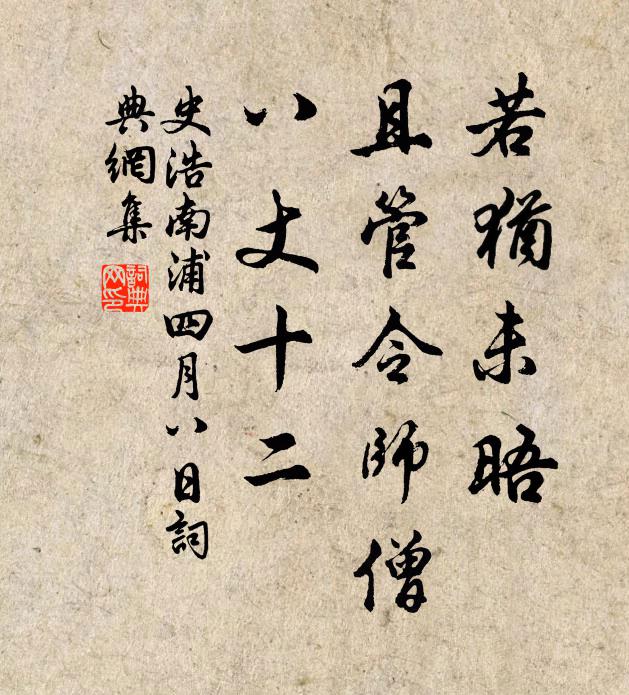 若猶未晤
且管令師僧
八丈十二
史浩南浦四月八日詞
典網集
詞典网印